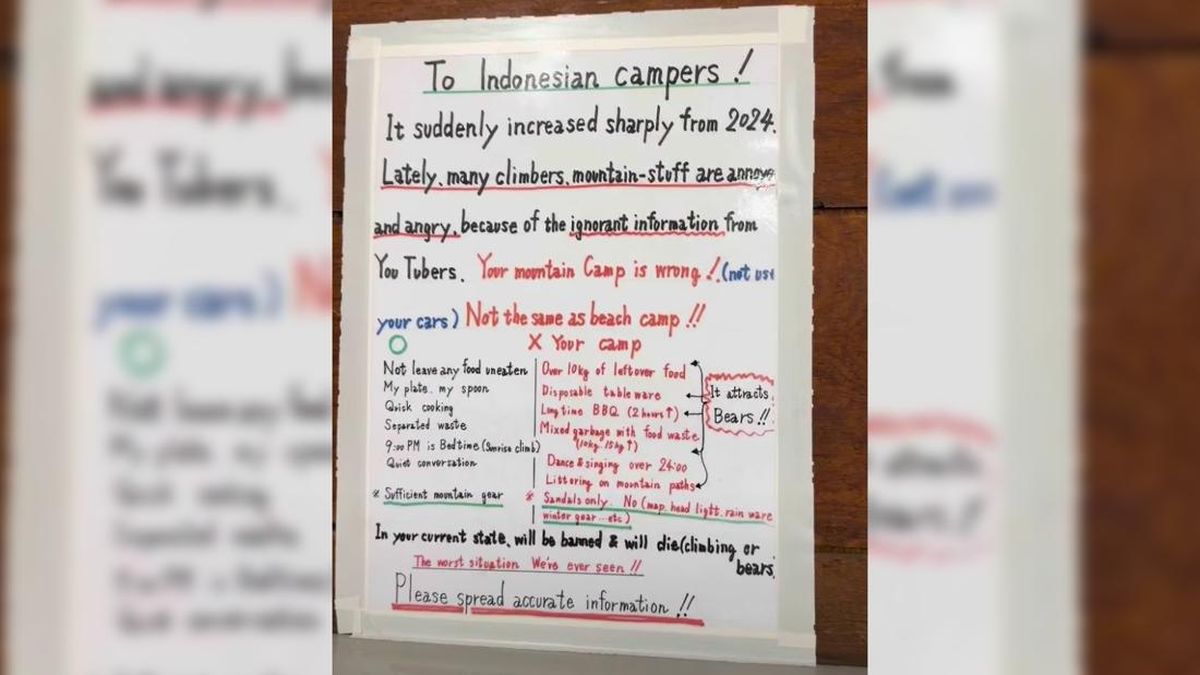 To Indonesian campers!
It suddenly increased sharply from 2024.
Lately, many climbers, mountain-stuff are annoye
and angry, because of the ignorant information from
You Tubers. Your mountain Camp is wrong! (not use
your cars) Not the same as beach camp!!
○
Not leave any food uneaten
My plate, my spoon
Quick cooking
Separated waste
9:00 PM is Bedtime (Sunrise climb)
Quiet conversation
※ Sufficient mountain gear
X Your camp
Over 10kg of leftover food
Disposable tableware
Long time BBQ (2 hours↑)
Mixed garbage with food waste
(10kg, 15kg↑)
Dance & singing over 24:00
Littering on mountain paths
※ Sandals only. No (map, head light, rain ware
winter gear...etc)
It attracts
Bears!!
In your current state, will be banned & will die (climbing or
bears)
The worst situation We've ever seen!!
Please spread accurate information!!